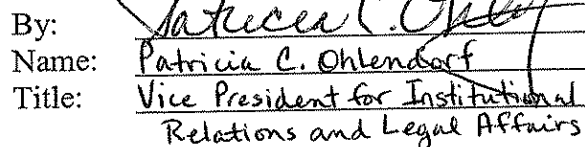 By: Patricia C. Ohlendorf
Name: Patricia C. Ohlendorf
Title: Vice President for Institutional
Relations and Legal Affairs